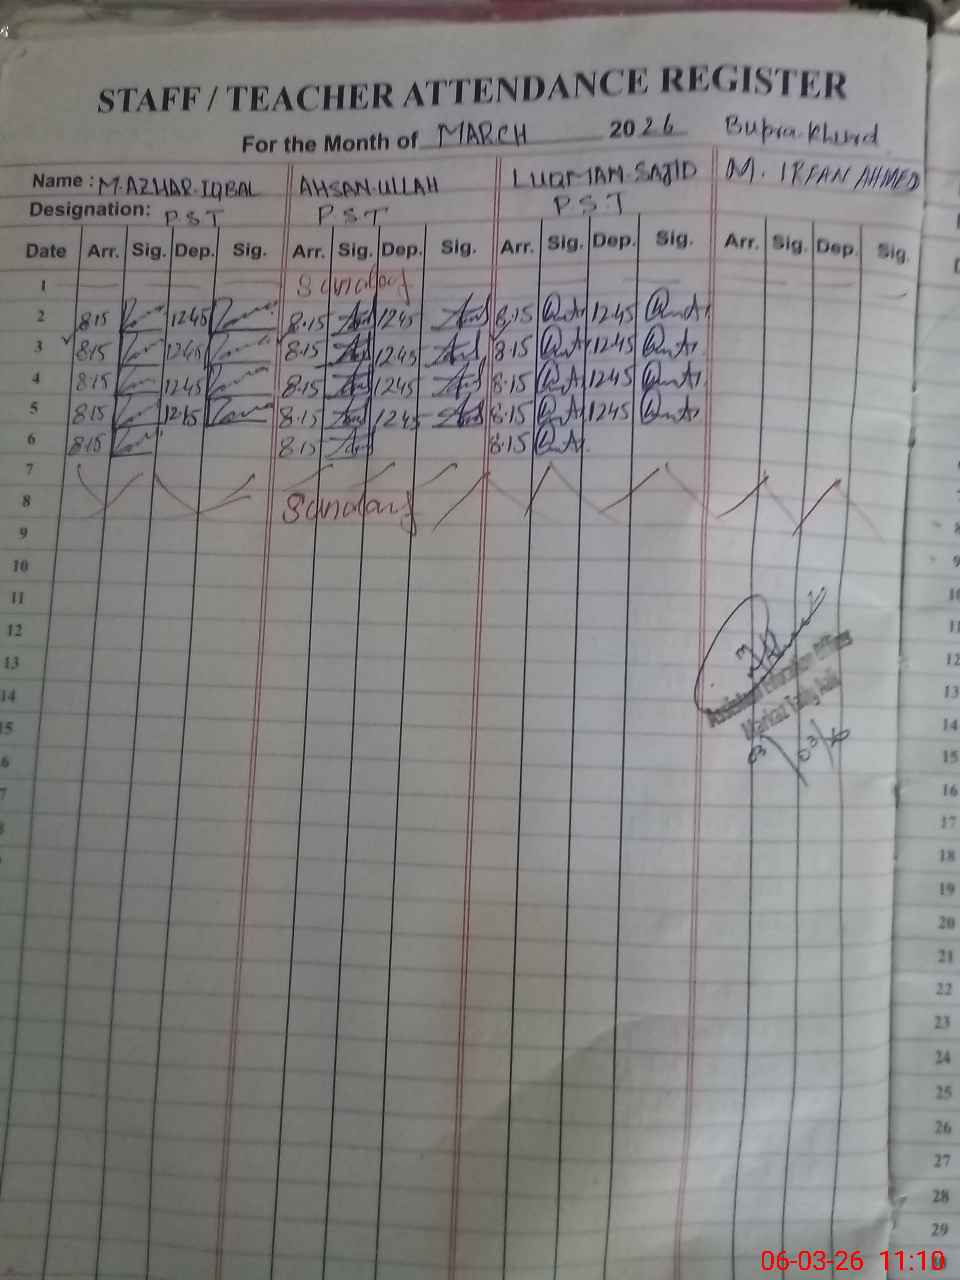 STAFF / TEACHER ATTENDANCE REGISTER
For the Month of MARCH 2026
Name : M. AZHAR. IQBAL AHSAN. ULLAH LUQMAN. SAJID M. IRFAN AHMED
Designation: P.S.T P.S.T P.S.T
Date Arr. Sig. Dep. Sig. Arr. Sig. Dep. Sig. Arr. Sig. Dep. Sig. Arr. Sig. Dep. Sig.
1 Sunday
2 8:15 1245 8.15 1245 8.15 1245
3 8:15 1245 8.15 1245 8.15 1245
4 8:15 1245 8.15 1245 8.15 1245
5 8:15 1245 8.15 1245 8.15 1245
6 8:15 8.15 8.15
7
8 Sunday
9
10
11
12
13
14
15
16
17
18
19
20
21
22
23
24
25
26
27
28
29
Assistant Education Officer
03/03/26
06-03-26 11:10